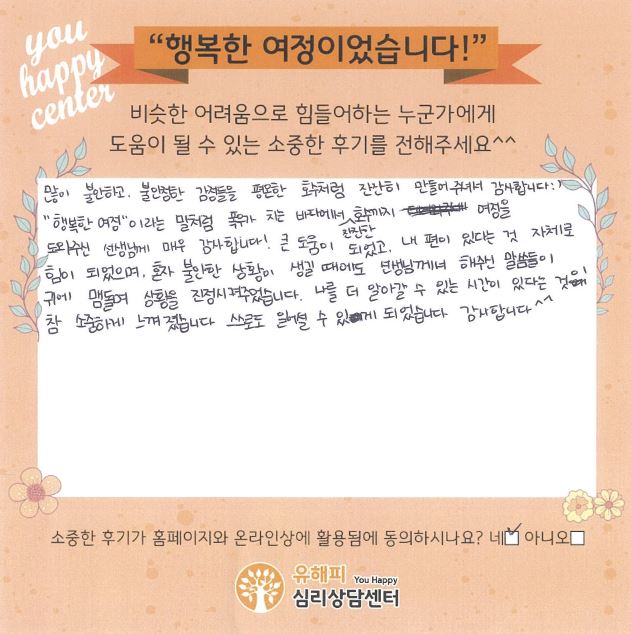 you
happy
center
“행복한 여정이었습니다!”
비슷한 어려움으로 힘들어하는 누군가에게
도움이 될 수 있는 소중한 후기를 전해주세요^^
많이 불안하고, 불안정한 감정들을 평온한 호수처럼 잔잔히 만들어주셔서 감사합니다:)
"행복한 여정"이라는 말처럼 폭풍가 치는 바다에서 호수까지 여정을
잔잔한
도와주신 선생님께 매우 감사합니다! 큰 도움이 되었고, 내 편이 있다는 것 자체로
힘이 되었으며, 혼자 불안한 상황이 생길 때에도 선생님께서 해주신 말씀들이
귀에 맴돌며 상황을 진정시켜주었습니다. 나를 더 알아갈 수 있는 시간이 있다는 것이
참 소중하게 느껴졌습니다 스스로도 일어설 수 있게 되었습니다 감사합니다^^
소중한 후기가 홈페이지와 온라인상에 활용됨에 동의하시나요? 네☑ 아니오□
유해피 You Happy
심리상담센터